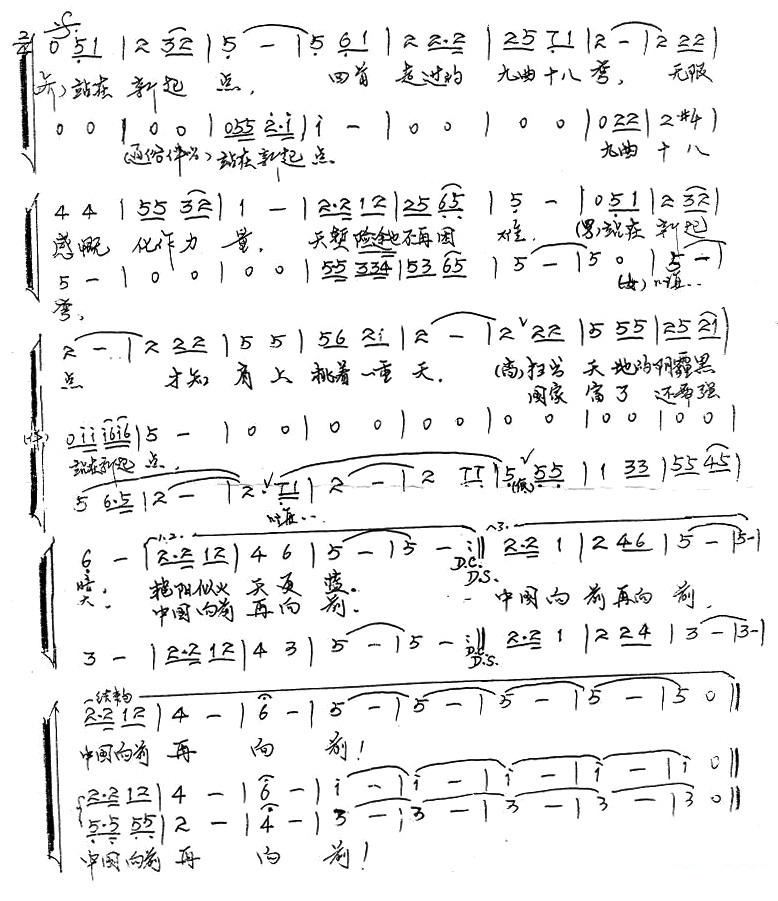 2/4 0 5 1 | 2 3 2 | 5 — | 5 6 1 | 2 2·2 | 2 5 7 1 | 2 — | 2 2 2 |
站在 新起 点, 回首 走过的 九曲十八 弯, 无限
0 0 | 0 0 | 0 5 5 2·i | i — | 0 0 | 0 0 | 0 2 2 | 2 #4 |
站在新起 点 九曲 十 八
4 4 | 5 5 3 2 | 1 — | 2·2 1 2 | 2 5 6 5 | 5 — | 0 5 1 | 2 3 2 |
感慨 化作力 量, 天堑险途不再困 难. (男)站在 新起
5 — | 0 0 | 0 0 | 5 5 3 3 4 | 5 3 6 5 | 5 — | 5 0 | 5 — |
弯, (女)
2 — | 2 2 2 | 5 5 | 5 6 2 i | 2 — | 2 ˅ 2 2 | 5 5 5 | 2 5 2 i |
点 才知 肩上 挑着一重 天. (高)扫尽 天地的阴霾黑
国家 富了 还要强
0 i i i 6 i 6 | 5 — | 0 0 | 0 0 | 0 0 | 0 0 | 0 0 | 0 0 |
站在新起 点,
5 6·5 | 2 — | 2· ˅ 7 1 | 2 — | 2 7 7 | 5 ˅ 5 5 | 1 3 3 | 5 5 4 5 |
(低)
1.2. 3.
6 — | 2·2 1 2 | 4 6 | 5 — | 5 — :‖ 2·2 1 | 2 4 6 | 5 — | 5 — |
D.C.
D.S.
暗, 艳阳似火 天更 蓝。
大, 中国向前 再向 前. 中国向 前再向 前.
3 — | 2·2 1 2 | 4 3 | 5 — | 5 — :‖ 2·2 1 | 2 2 4 | 3 — | 3 — |
D.C.
D.S.
结束句
2·2 1 2 | 4 — | 6 — | 5 — | 5 — | 5 — | 5 — | 5 0 ‖
中国向前 再 向 前!
2·2 1 2 | 4 — | 6 — | i — | i — | i — | i — | i 0 ‖
5·5 5 5 | 2 — | 4 — | 3 — | 3 — | 3 — | 3 — | 3 0 ‖
中国向前 再 向 前!